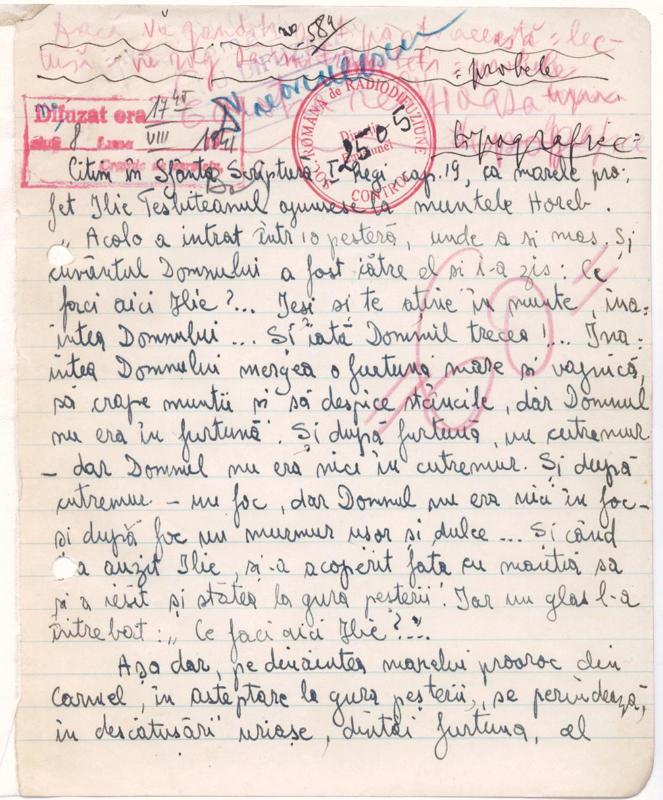 Dacă vă gândiți să tipăriți această lec-
tură - vă rog
= probele
no 584
Difuzat ora 17 45
Ziua 8 Luna VIII 1941
SOC. ROMÂNĂ de RADIODIFUZIUNE
CONTROL
2505
tipografice =
Citim în Sfânta Scriptură I Regi cap. 19, că marele pro-
fet Ilie Tesbiteanul ajunsese la muntele Horeb.
„Acolo a intrat într'o peșteră, unde a și mas. Și
cuvântul Domnului a fost către el și i-a zis: Ce
faci aici Ilie?... Ieși și te aține în munte, îna-
intea Domnului... Și iată Domnul trecea!... Ina-
intea Domnului mergea o furtună mare și vajnică,
să crape munții și să despice stâncile, dar Domnul
nu era în furtună. Și după furtună, un cutremur
- dar Domnul nu era nici în cutremur. Și după
cutremur - un foc, dar Domnul nu era nici în foc -
și după foc un murmur ușor și dulce... Și când
l'a auzit Ilie, și-a acoperit fața cu mantia sa
și a ieșit și stătea la gura peșterii. Iar un glas l-a
întrebat: „Ce faci aici Ilie?"...
Așa dar, pe dinaintea marelui prooroc din
Carmel, în așteptare la gura peșterii, se perindează,
în descătușări uriașe, dintâi furtuna, al
= 60 =